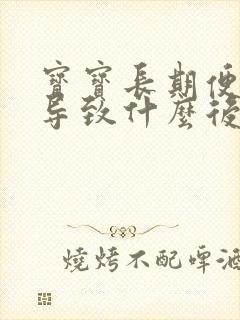 寶寶長期便
导致什麼後
燒烤不配啤酒